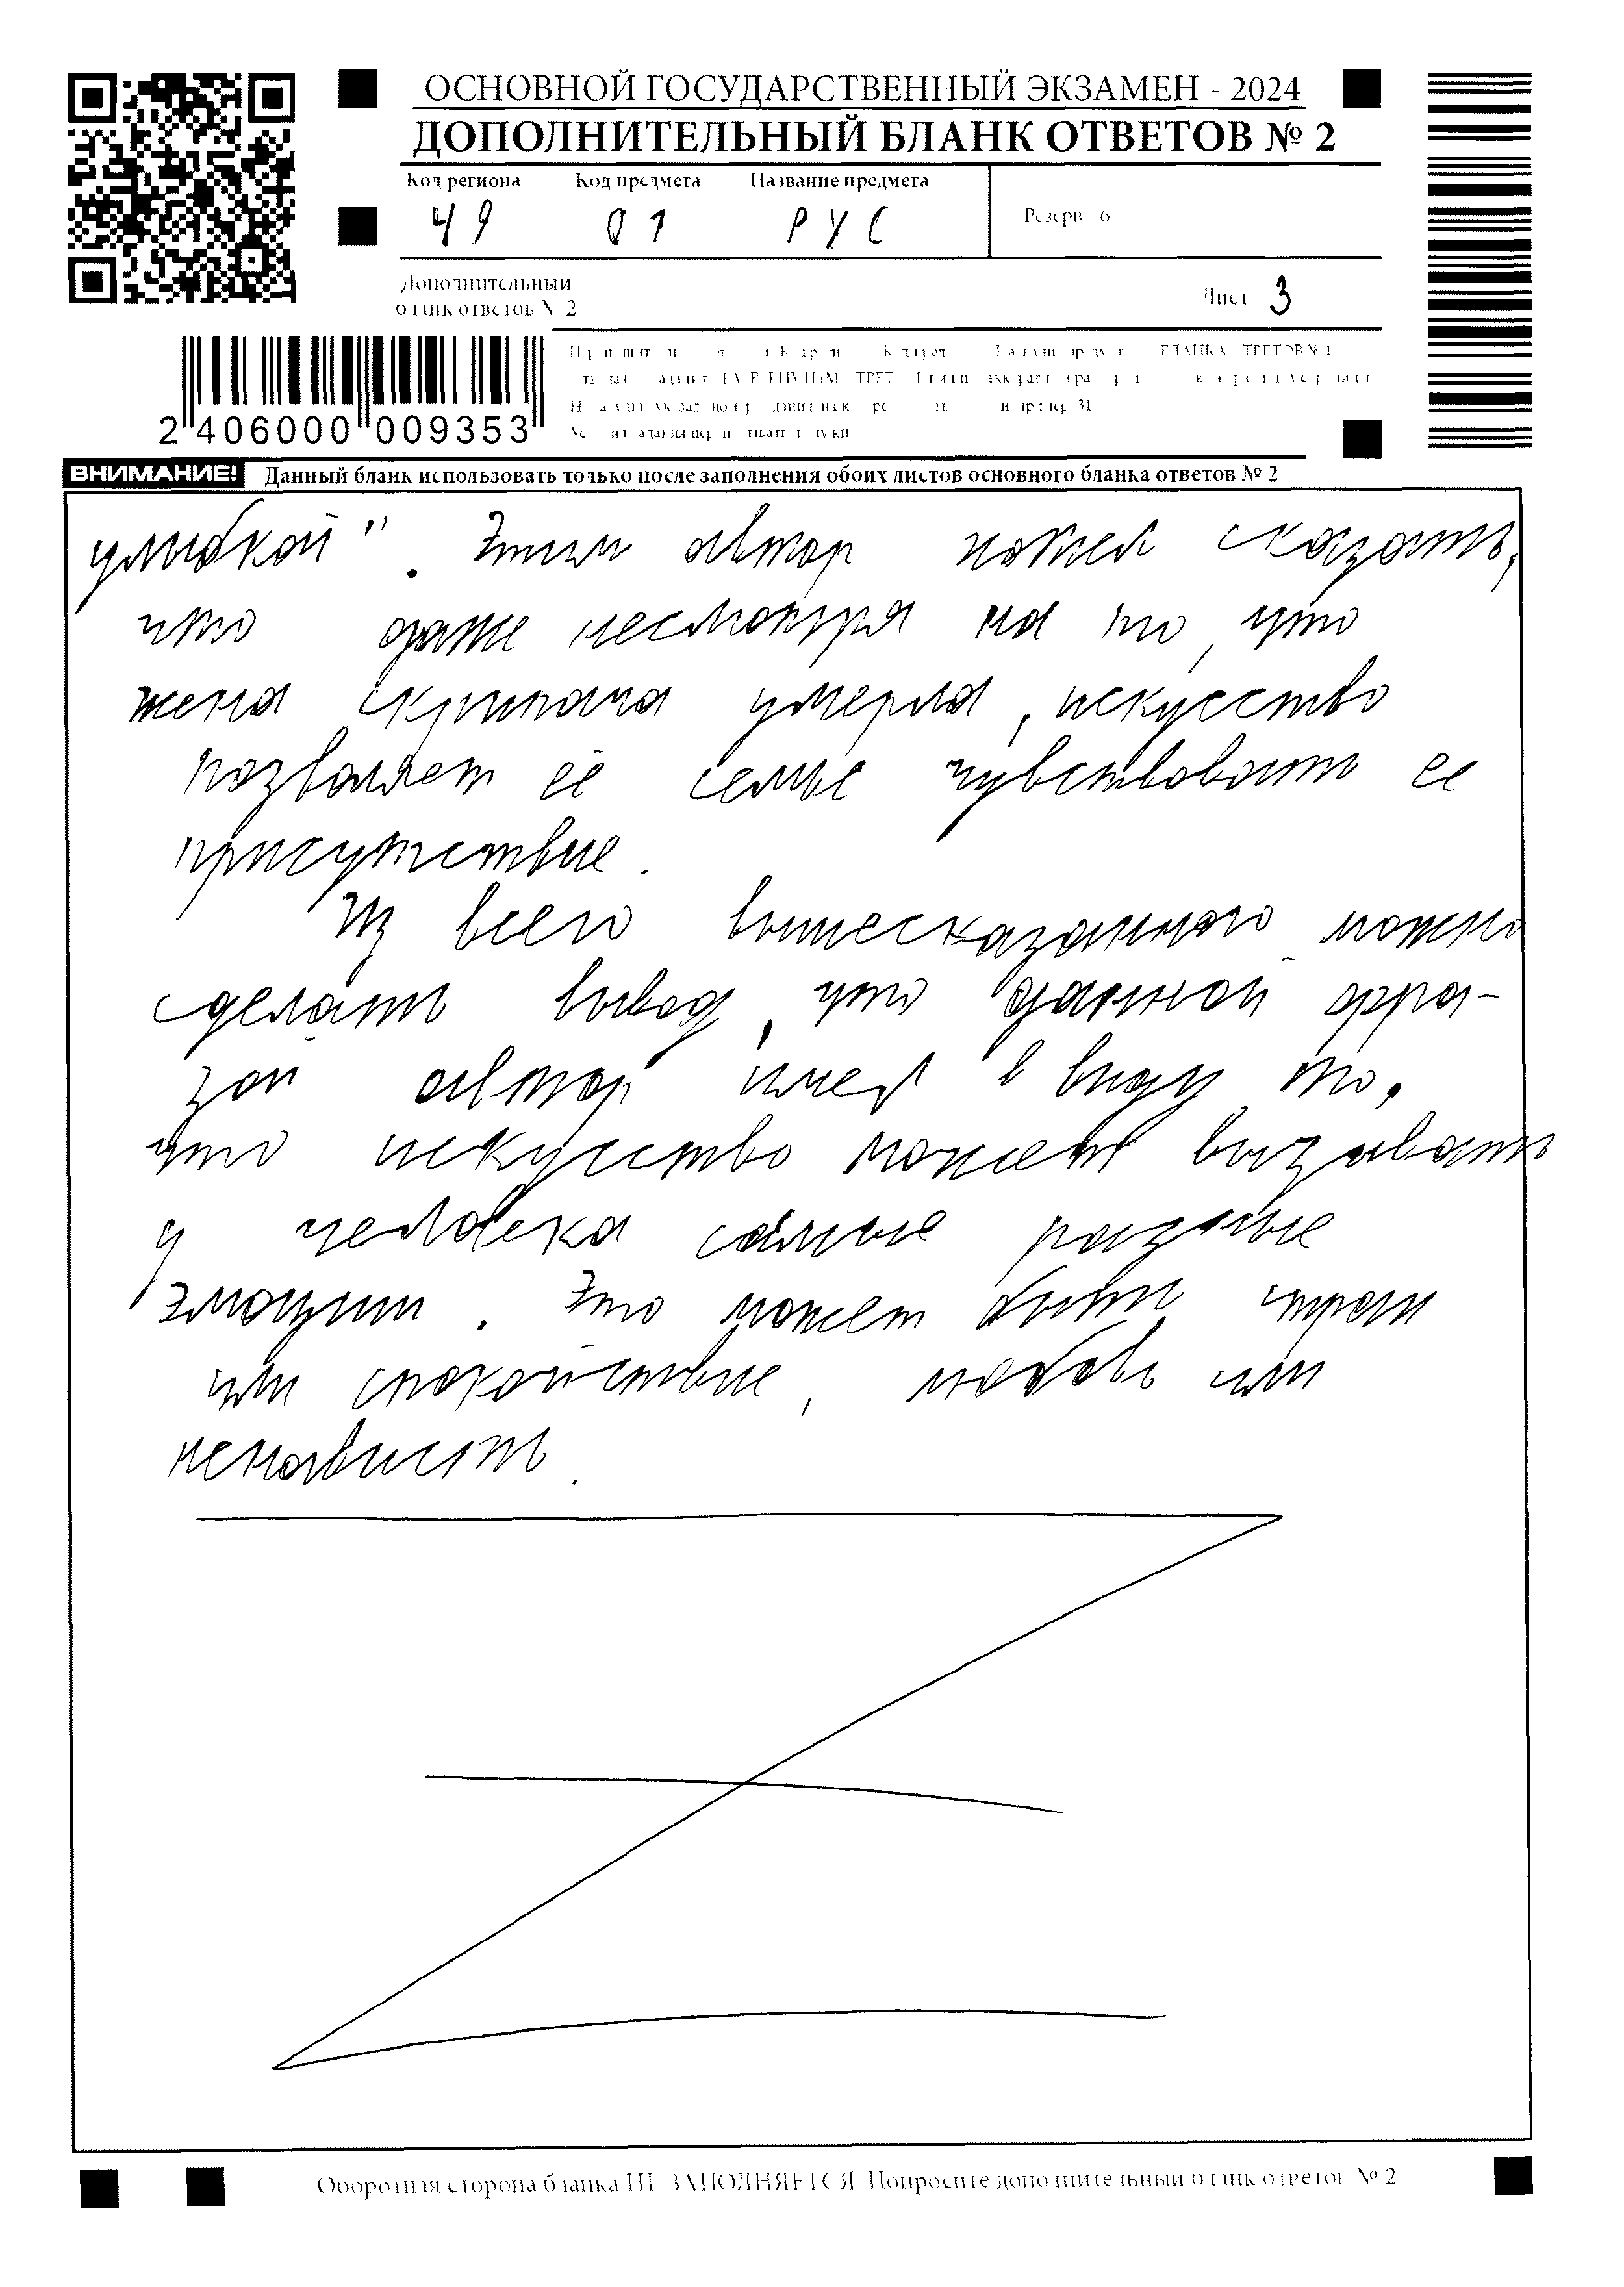 ОСНОВНОЙ ГОСУДАРСТВЕННЫЙ ЭКЗАМЕН - 2024
ДОПОЛНИТЕЛЬНЫЙ БЛАНК ОТВЕТОВ № 2
Код региона Код предмета Название предмета
49 01 РУС
Резерв - 6
Дополнительный
бланк ответов № 2
Лист 3
2 406000 009353
ВНИМАНИЕ! Данный бланк использовать только после заполнения обоих листов основного бланка ответов № 2
улыбкой". Этим автор хотел сказать,
что даже несмотря на то, что
жена скрипача умерла, искусство
позваляет её семье чувствовать ее
присутствие.
Из всего вышесказанного можно
сделать вывод, что данной фра-
зой автор имел в виду то,
что искусство может вызывать
у человека самые разные
эмоции. Это может быть страх
или спокойствие, любовь или
ненависть.
Оборотная сторона бланка НЕ ЗАПОЛНЯЕТСЯ. Попросите дополнительный бланк ответов № 2